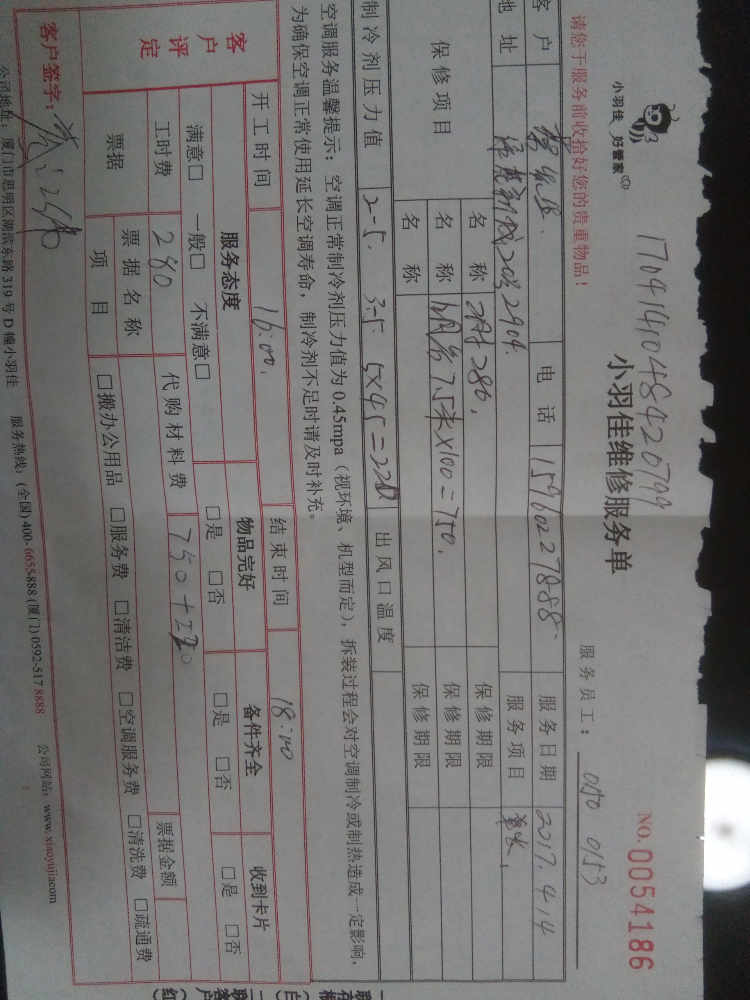 小羽佳 好管家
1704141048420799
小羽佳维修服务单
NO.0054186
请您于服务前收拾好您的贵重物品！
服务员工： 0150 0153
客户 电话 15960227888 服务日期 2017.4.14
地址 2904 服务项目
保修项目 名称 280 保修期限
名称 7.5米×100=750 保修期限
名称 保修期限
制冷剂压力值 2-5. 3-5 5×45=220 出风口温度
空调服务温馨提示：空调正常制冷剂压力值为0.45mpa（视环境、机型而定），拆装过程会对空调制冷或制热造成一定影响，
为确保空调正常使用延长空调寿命，制冷剂不足时请及时补充。
开工时间 16:00 结束时间 18:00
客户评定 服务态度 物品完好 备件齐全 收到卡片
满意□ 一般□ 不满意□ □是 □否 □是 □否 □是 □否
工时费 280 代购材料费 750+220 票据金额
票据 票据名称
项目 □搬办公用品 □服务费 □清洁费 □空调服务费 □清洗费 □疏通费
客户签字：
公司地址：厦门市思明区湖滨东路319号D幢小羽佳 服务热线：(全国) 400-6655-888 (厦门) 0592-517 8888 公司网站：www.xiaoyujiacom